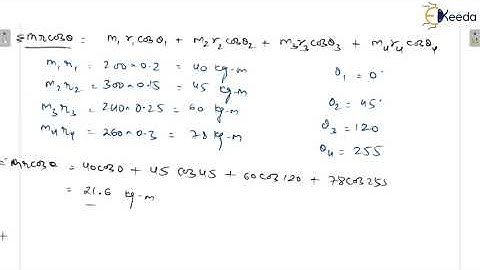 EKeeda
Σmrcosθ = m₁r₁cosθ₁ + m₂r₂cosθ₂ + m₃r₃cosθ₃ + m₄r₄cosθ₄
m₁r₁ = 200×0.2 = 40 kg-m
θ₁ = 0°
m₂r₂ = 300×0.15 = 45 kg-m
θ₂ = 45°
m₃r₃ = 240×0.25 = 60 kg-m
θ₃ = 120
m₄r₄ = 260×0.3 = 78 kg-m
θ₄ = 255
Σmrcosθ = 40cos0 + 45 cos45 + 60cos120 + 78cos255
= 21.6 kg-m